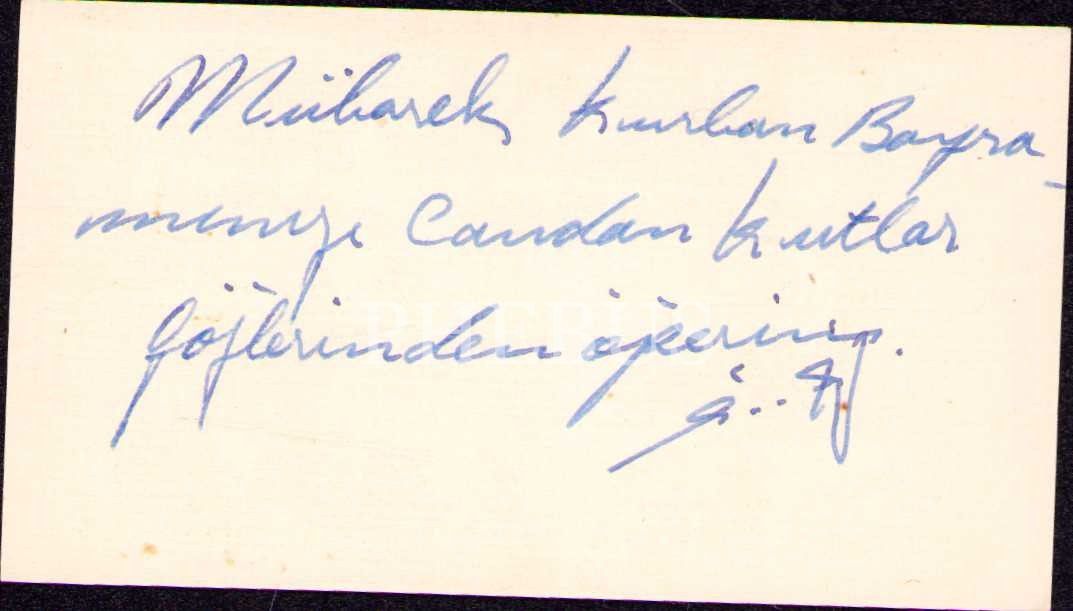 Mübarek Kurban Bayra-
mınızı Candan kutlar
gözlerinden öperim.
PHEBUS